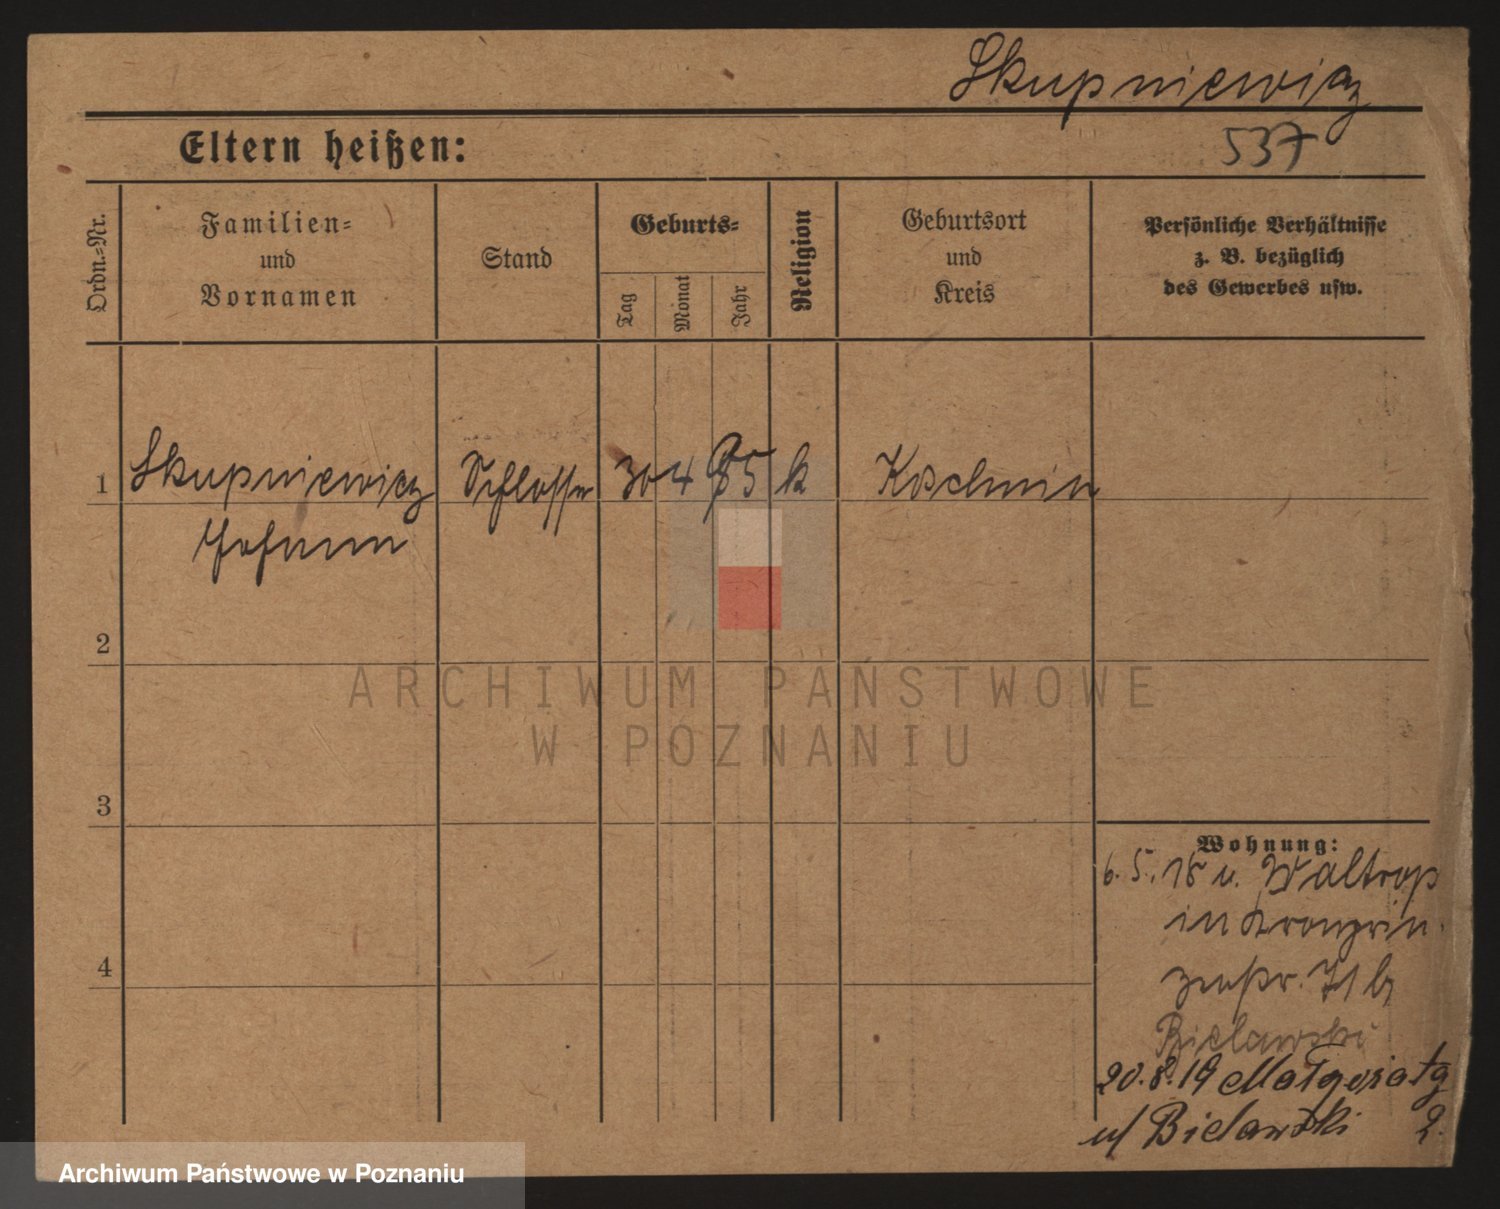 Skupniewicz
Eltern heißen:
537
Ordn.-Nr.
Familien-
und
Vornamen
Stand
Geburts-
Tag
Monat
Jahr
Religion
Geburtsort
und
Kreis
Persönliche Verhältnisse
z. B. bezüglich
des Gewerbes usw.
1 Skupniewicz Schlosser 30 4 85 k Koschmin
Johann
2
3
4
Wohnung:
6. 5. 18 n. Waltrop
in Kronprin
zenstr. 71 b
Bielawski
20.8.19 Małgosia
u/ Bielawski
ARCHIWUM PAŃSTWOWE
W POZNANIU
Archiwum Państwowe w Poznaniu